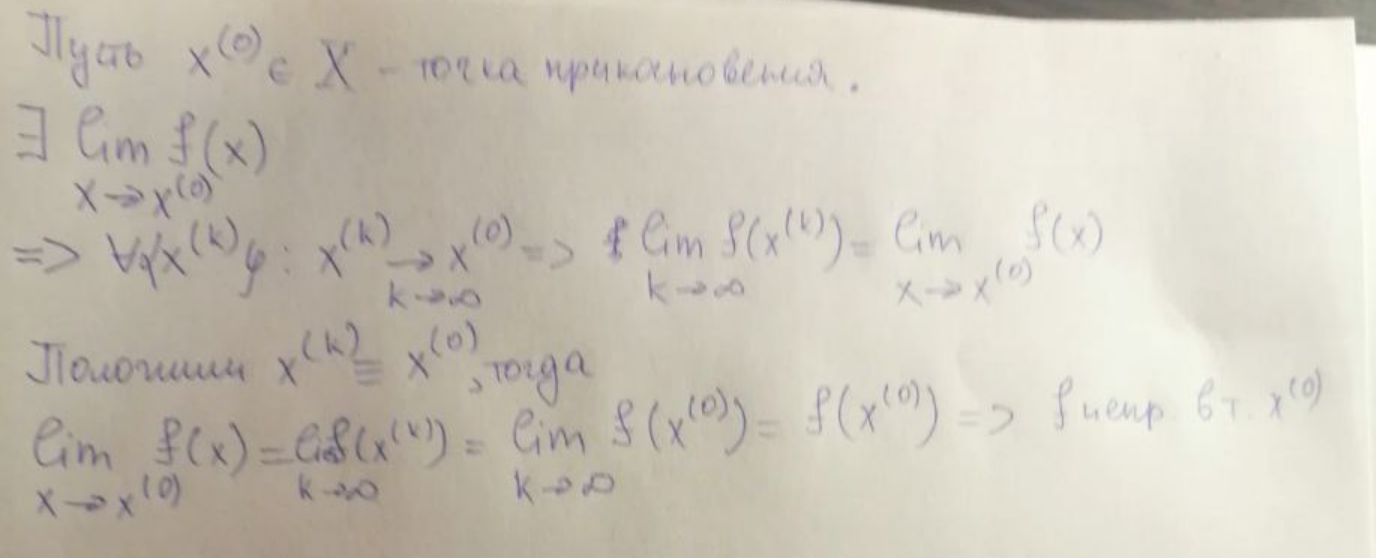 Пусть x^(0) ∈ X - точка прикосновения.
∃ lim f(x)
x→x^(0)
=> ∀{x^(k)}: x^(k) → x^(0) => lim f(x^(k)) = lim f(x)
k→∞ k→∞ x→x^(0)
Положим x^(k) ≡ x^(0), тогда
lim f(x) = lim f(x^(k)) = lim f(x^(0)) = f(x^(0)) => f непр. в т. x^(0)
x→x^(0) k→∞ k→∞